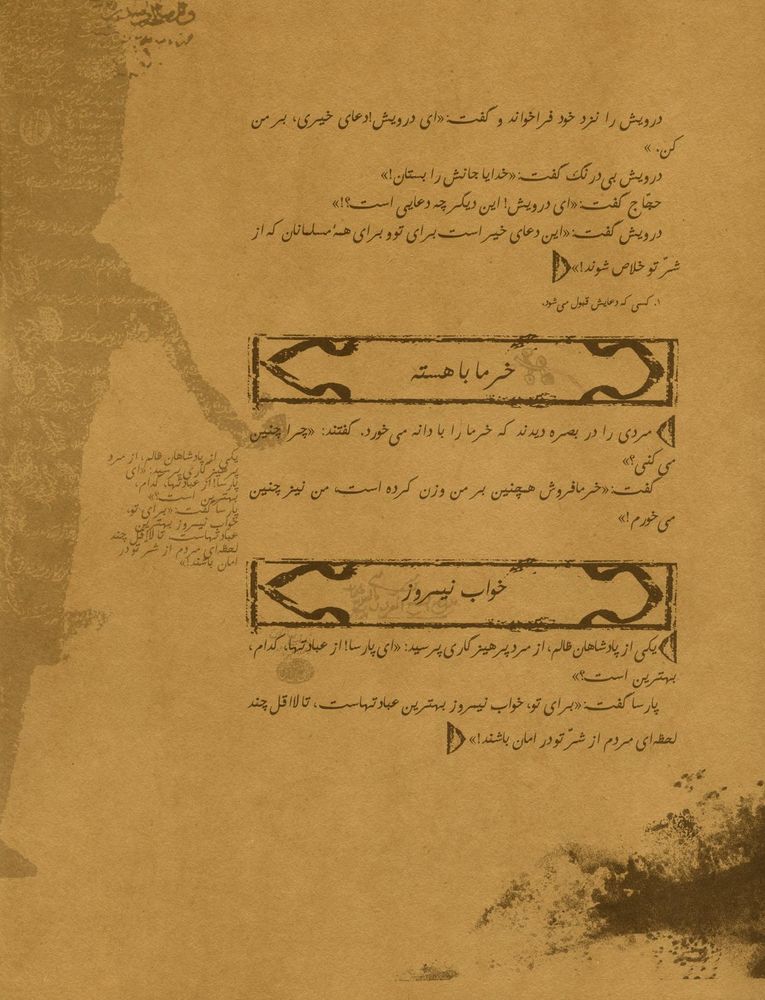 درویش را نزد خود فراخواند و گفت: «ای درویش! دعای خیری، بر من
کن. »
درویش بی‌درنگ گفت: «خدایا جانش را بستان!»
حجّاج گفت: «ای درویش! این دیگر چه دعایی است؟!»
درویش گفت: «این دعای خیر است برای تو و برای همهٔ مسلمانان که از
شرّ تو خلاص شوند!»
۱. کسی که دعایش قبول می‌شود.
خرما با هسته
مردی را در بصره دیدند که خرما را با دانه می‌خورد. گفتند: «چرا چنین
می‌کنی؟»
گفت: «خرمافروش همچنین بر من وزن کرده است، من نیز چنین
می‌خورم!»
خواب نیمروز
یکی از پادشاهان ظالم، از مرد پرهیزگاری پرسید: «ای پارسا! از عبادتها، کدام،
بهترین است؟»
پارسا گفت: «برای تو، خواب نیمروز بهترین عبادتهاست، تا لااقل چند
لحظه‌ای مردم از شرّ تو در امان باشند!»
یکی از پادشاهان ظالم، از مرد
پرهیزگاری پرسید: «ای
پارسا! از عبادتها، کدام،
بهترین است؟»
پارسا گفت: «برای تو،
خواب نیمروز بهترین
عبادتهاست، تا لااقل چند
لحظه‌ای مردم از شر تو در
امان باشند!»